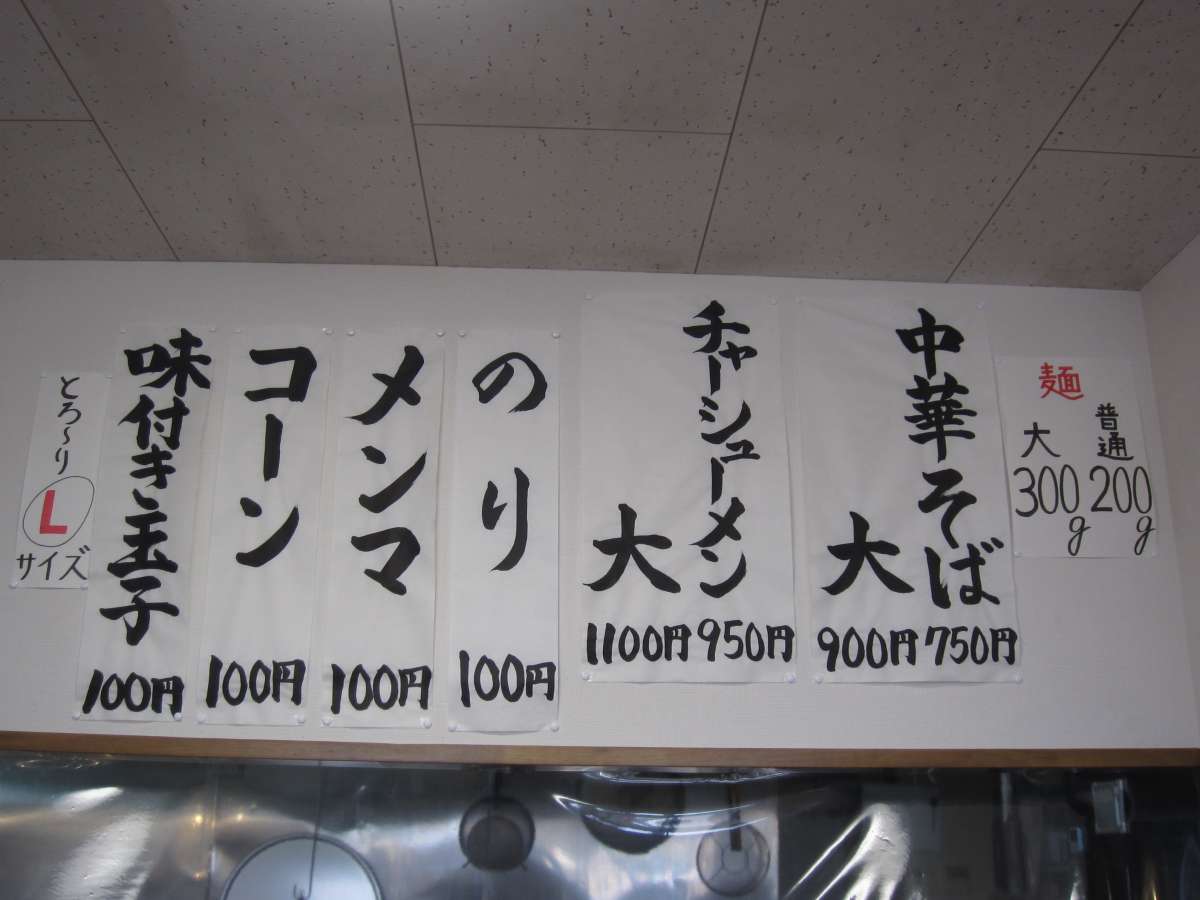 麺
普通
200g
大
300g
中華そば
750円
大
900円
チャーシューメン
950円
大
1100円
のり
100円
メンマ
100円
コーン
100円
味付き玉子
100円
とろ～り
L
サイズ